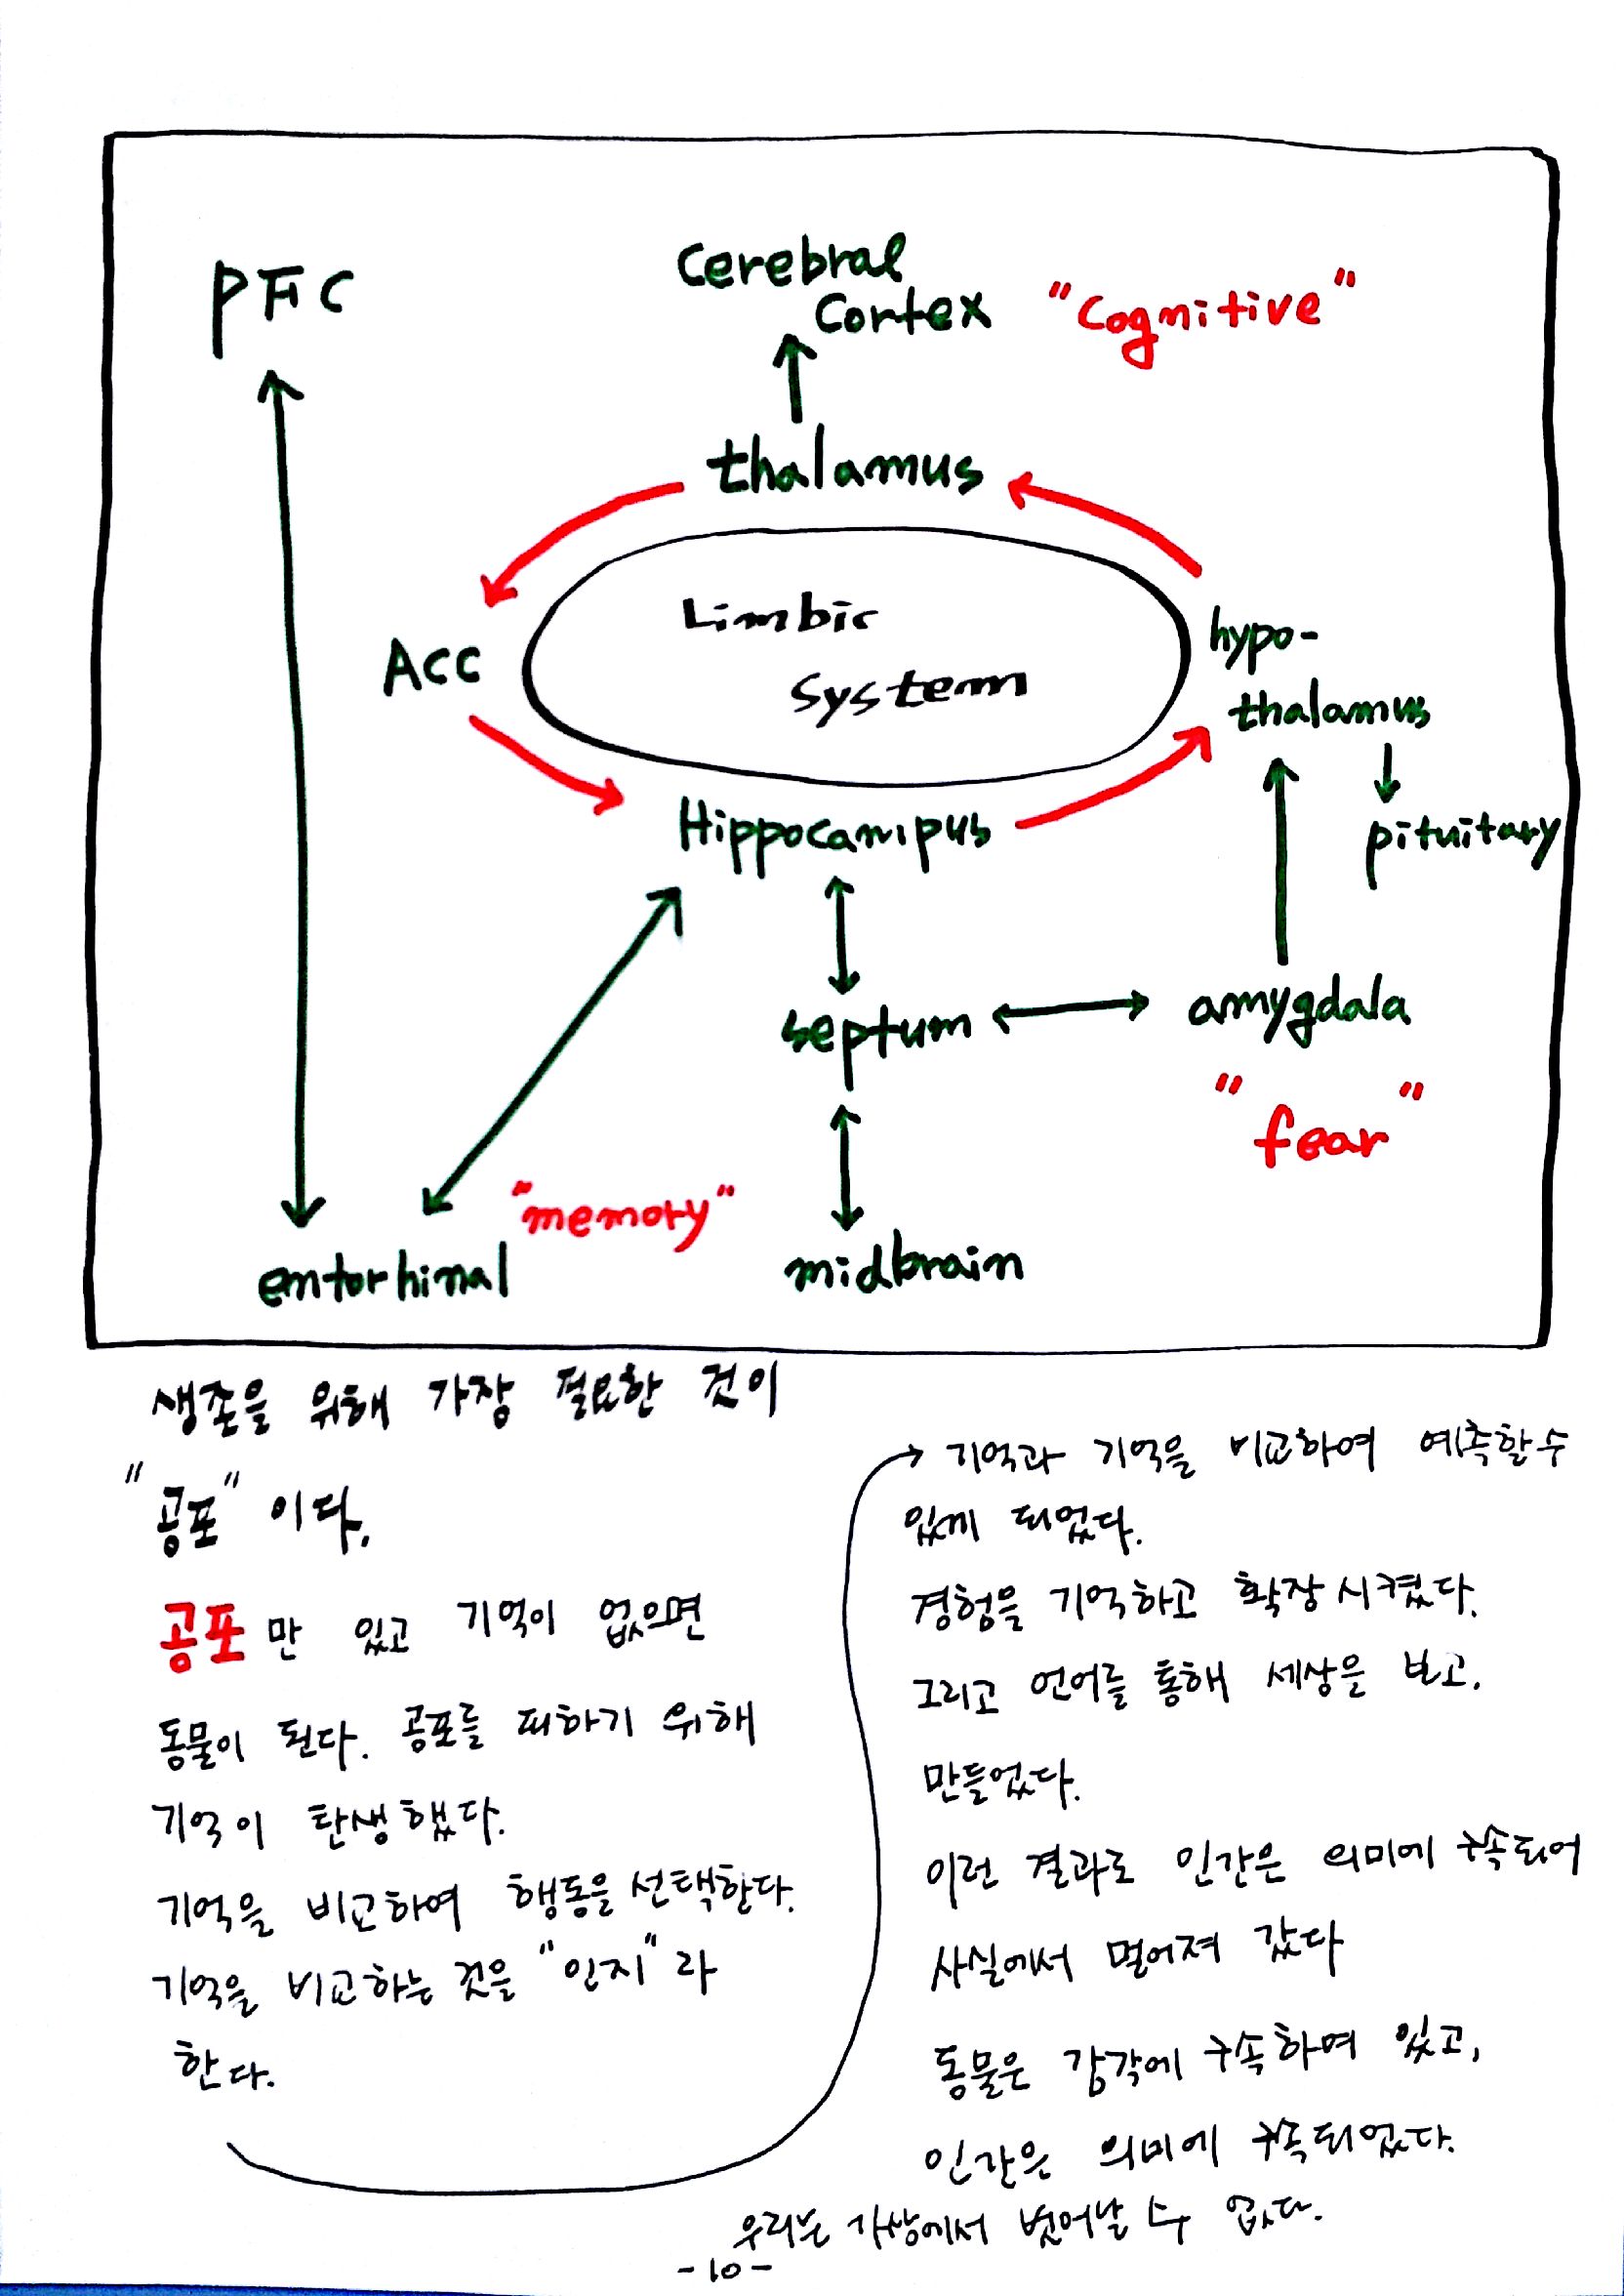 PFC
Cerebral
Cortex "Cognitive"
thalamus
Limbic
System
ACC
hypo-
thalamus
pituitary
Hippocampus
septum
amygdala
"fear"
"memory"
entorhinal
midbrain
생존을 위해 가장 필요한 것이
"공포"이다.
공포만 있고 기억이 없으면
동물이 된다. 공포를 피하기 위해
기억이 탄생했다.
기억을 비교하여 행동을 선택한다.
기억을 비교하는 것을 "인지"라
한다.
→ 기억과 기억을 비교하여 예측할 수
있게 되었다.
경험을 기억하고 확장시켰다.
그리고 언어를 통해 세상을 보고,
만들었다.
이런 결과로 인간은 의미에 구속되어
사실에서 멀어져 갔다
동물은 감각에 구속하며 있고,
인간은 의미에 구속되었다.
우리는 가상에서 벗어날 수 없다.
-10-